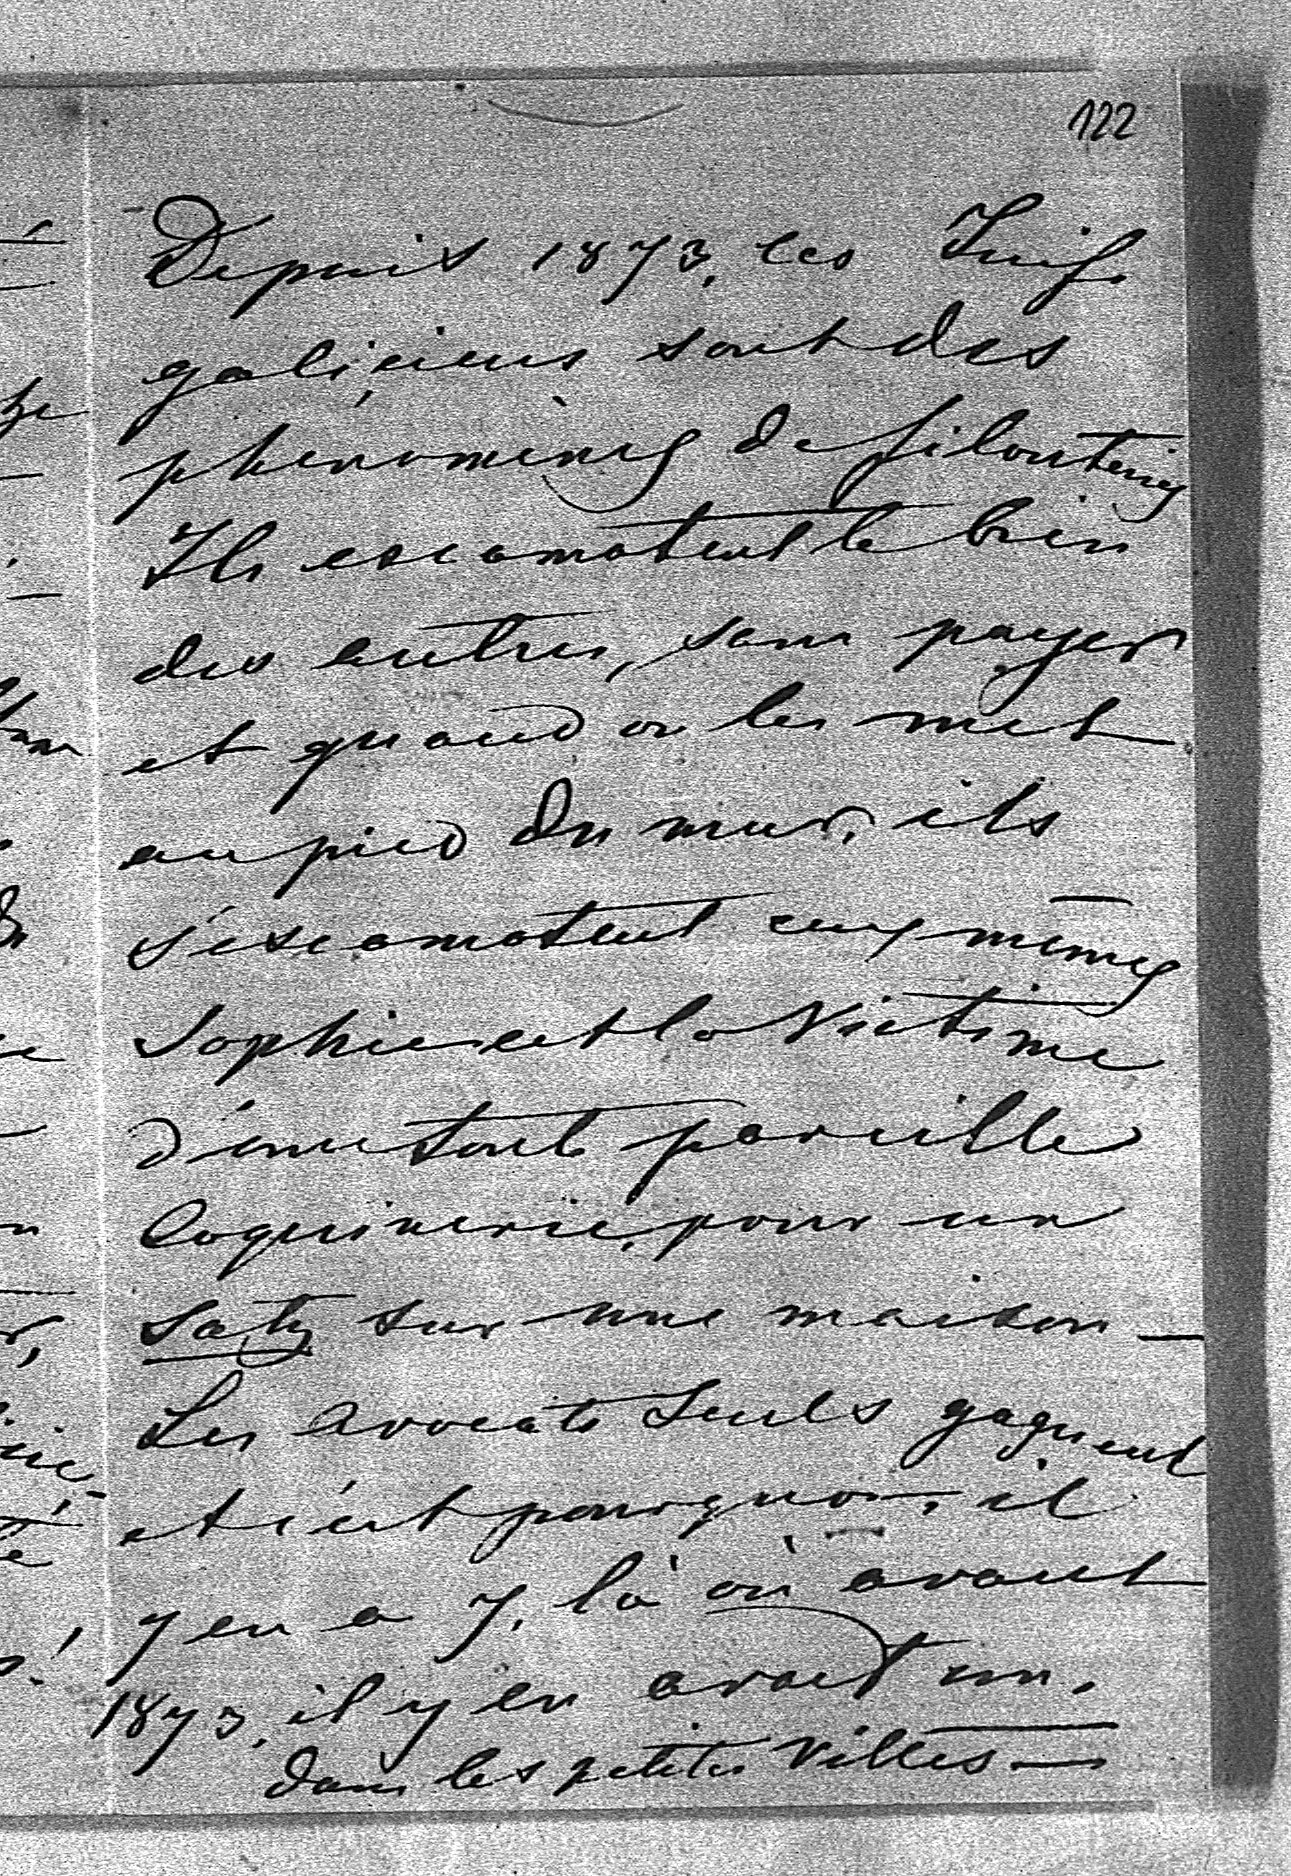 122
Depuis 1873, les Juifs
galiciens sont des
phénomènes de filouteries
Ils escamotent le bien
des autres, sans payer
et quand on les met
au pied du mur, ils
s'escamotent eux mêmes
Sophie est la Victime
d'une toute pareille
Coquinerie, pour un
Satz sur une maison —
Les avocats seuls gagnent
et c'est pourquoi, il
y en a 7, là où avant
1873, il y en avait un.
dans les petites Villes —